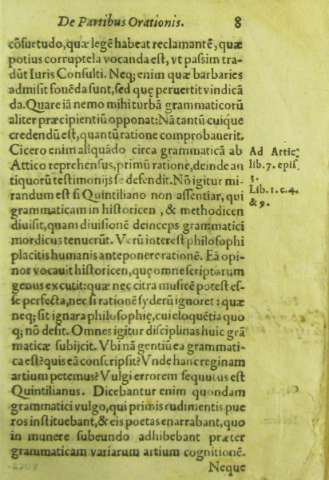 De Partibus Orationis. 8
cōsuetudo, quæ legē habeat reclamantē, quæ
potius corruptela vocanda est, vt passim tra-
dūt Iuris Consulti. Neq; enim quæ barbaries
admisit fouēda sunt, sed quę peruertit vindicā
da. Quare iā nemo mihi turbā grammaticorū
aliter præcipientiū opponat: Nā tantū cuique
credendū est, quantū ratione comprobauerit.
Cicero enim aliquādo circa grammaticā ab
Attico reprehensus, primū ratione, deinde an
tiquorū testimonijs se defendit. Nō igitur mi-
randum est si Quintiliano non assentiar, qui
grammaticam in historicen, & methodicen
diuisit, quam diuisionē deinceps grammatici
mordicus tenuerūt. Verū interest philosophi
placitis humanis anteponere rationē. Eā opi-
nor vocauit historicen, quę omne scriptorum
genus excutit: quæ nec citra musicē potest es-
se perfecta, nec si rationē syderū ignoret: quæ
neq; sit ignara philosophię, cui eloquētia quo
q; nō desit. Omnes igitur disciplinas huic grā
maticæ subijcit. Vbi nā gentiū ea grammati-
ca est? quis eā conscripsit? Vnde hanc reginam
artium petemus? Vulgi errorem sequutus est
Quintilianus. Dicebantur enim quondam
grammatici vulgo, qui primis rudimentis pue
ros instituebant, & eis poetas enarrabant, quo
in munere subeundo adhibebant præter
grammaticam variarum artium cognitionē.
Neque
Ad Attic;
lib. 7. epis.
3.
Lib. 1. c. 4.
& 9.